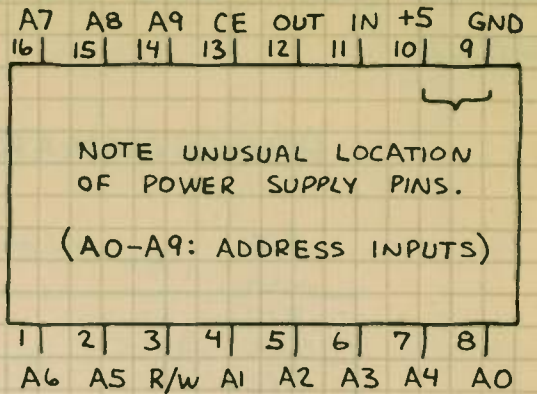 A7 A8 A9 CE OUT IN +5 GND
16 15 14 13 12 11 10 9
NOTE UNUSUAL LOCATION
OF POWER SUPPLY PINS.
(A0-A9: ADDRESS INPUTS)
1 2 3 4 5 6 7 8
A6 A5 R/W A1 A2 A3 A4 A0